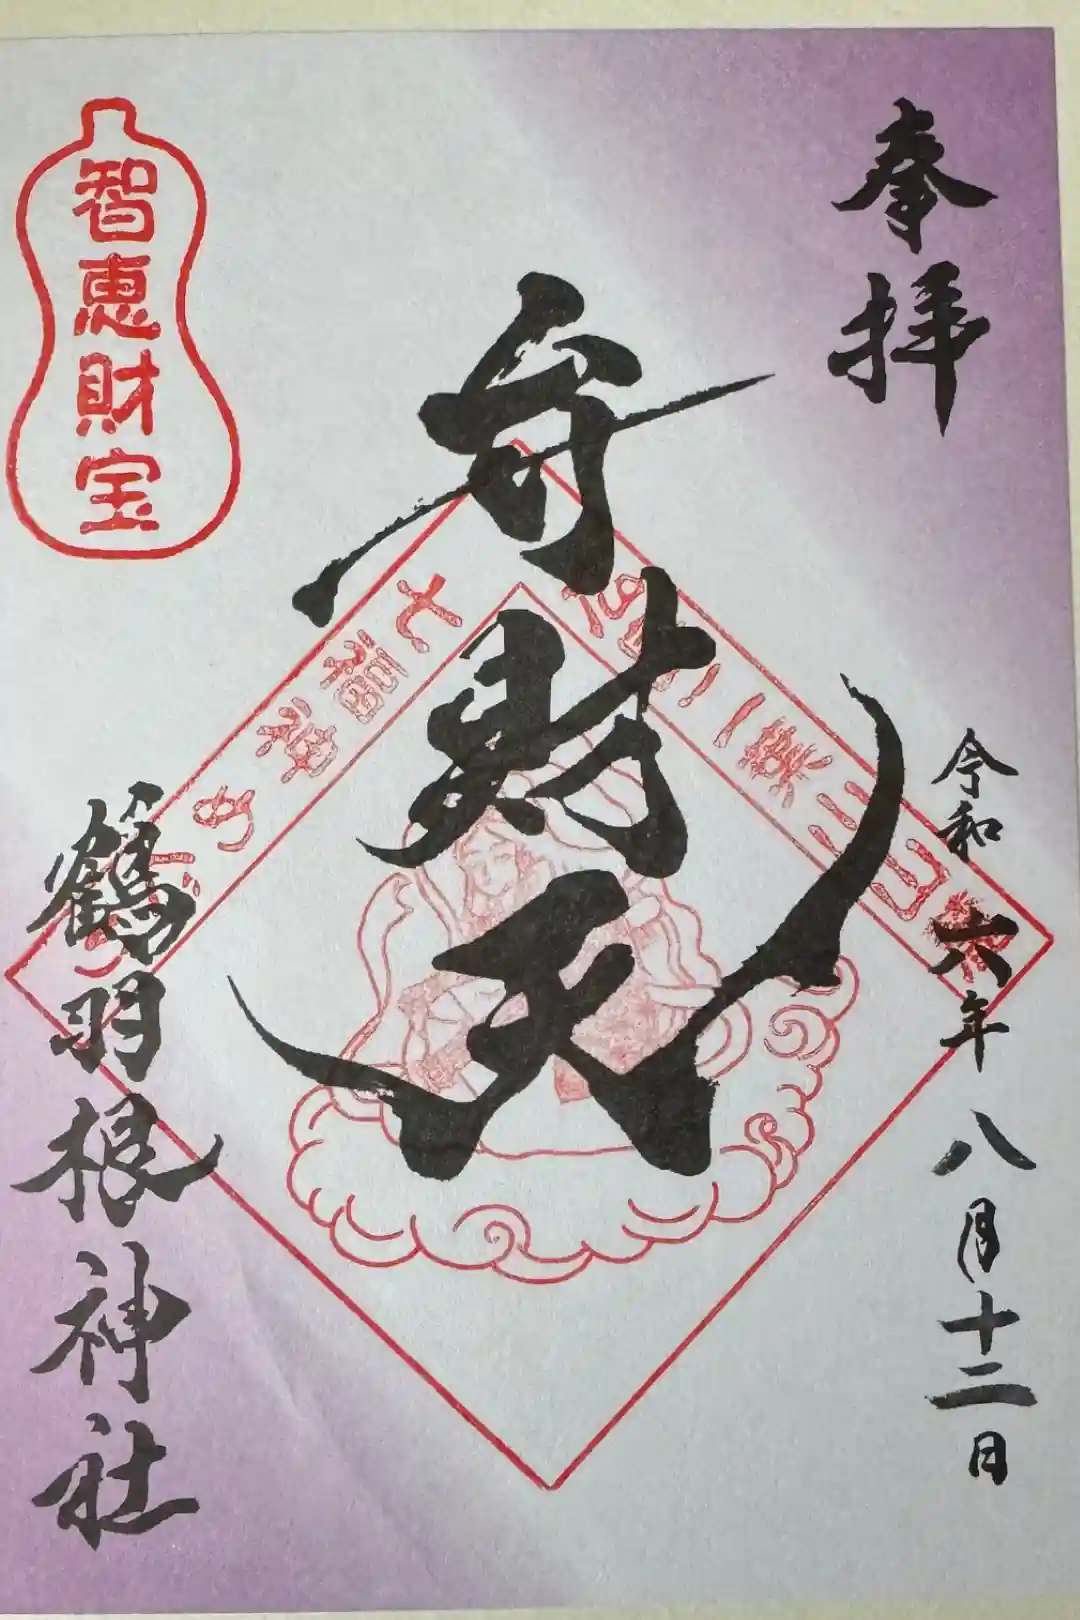 奉拝
令和六年八月十二日
弁財天
七福神
智恵財宝
鶴羽根神社